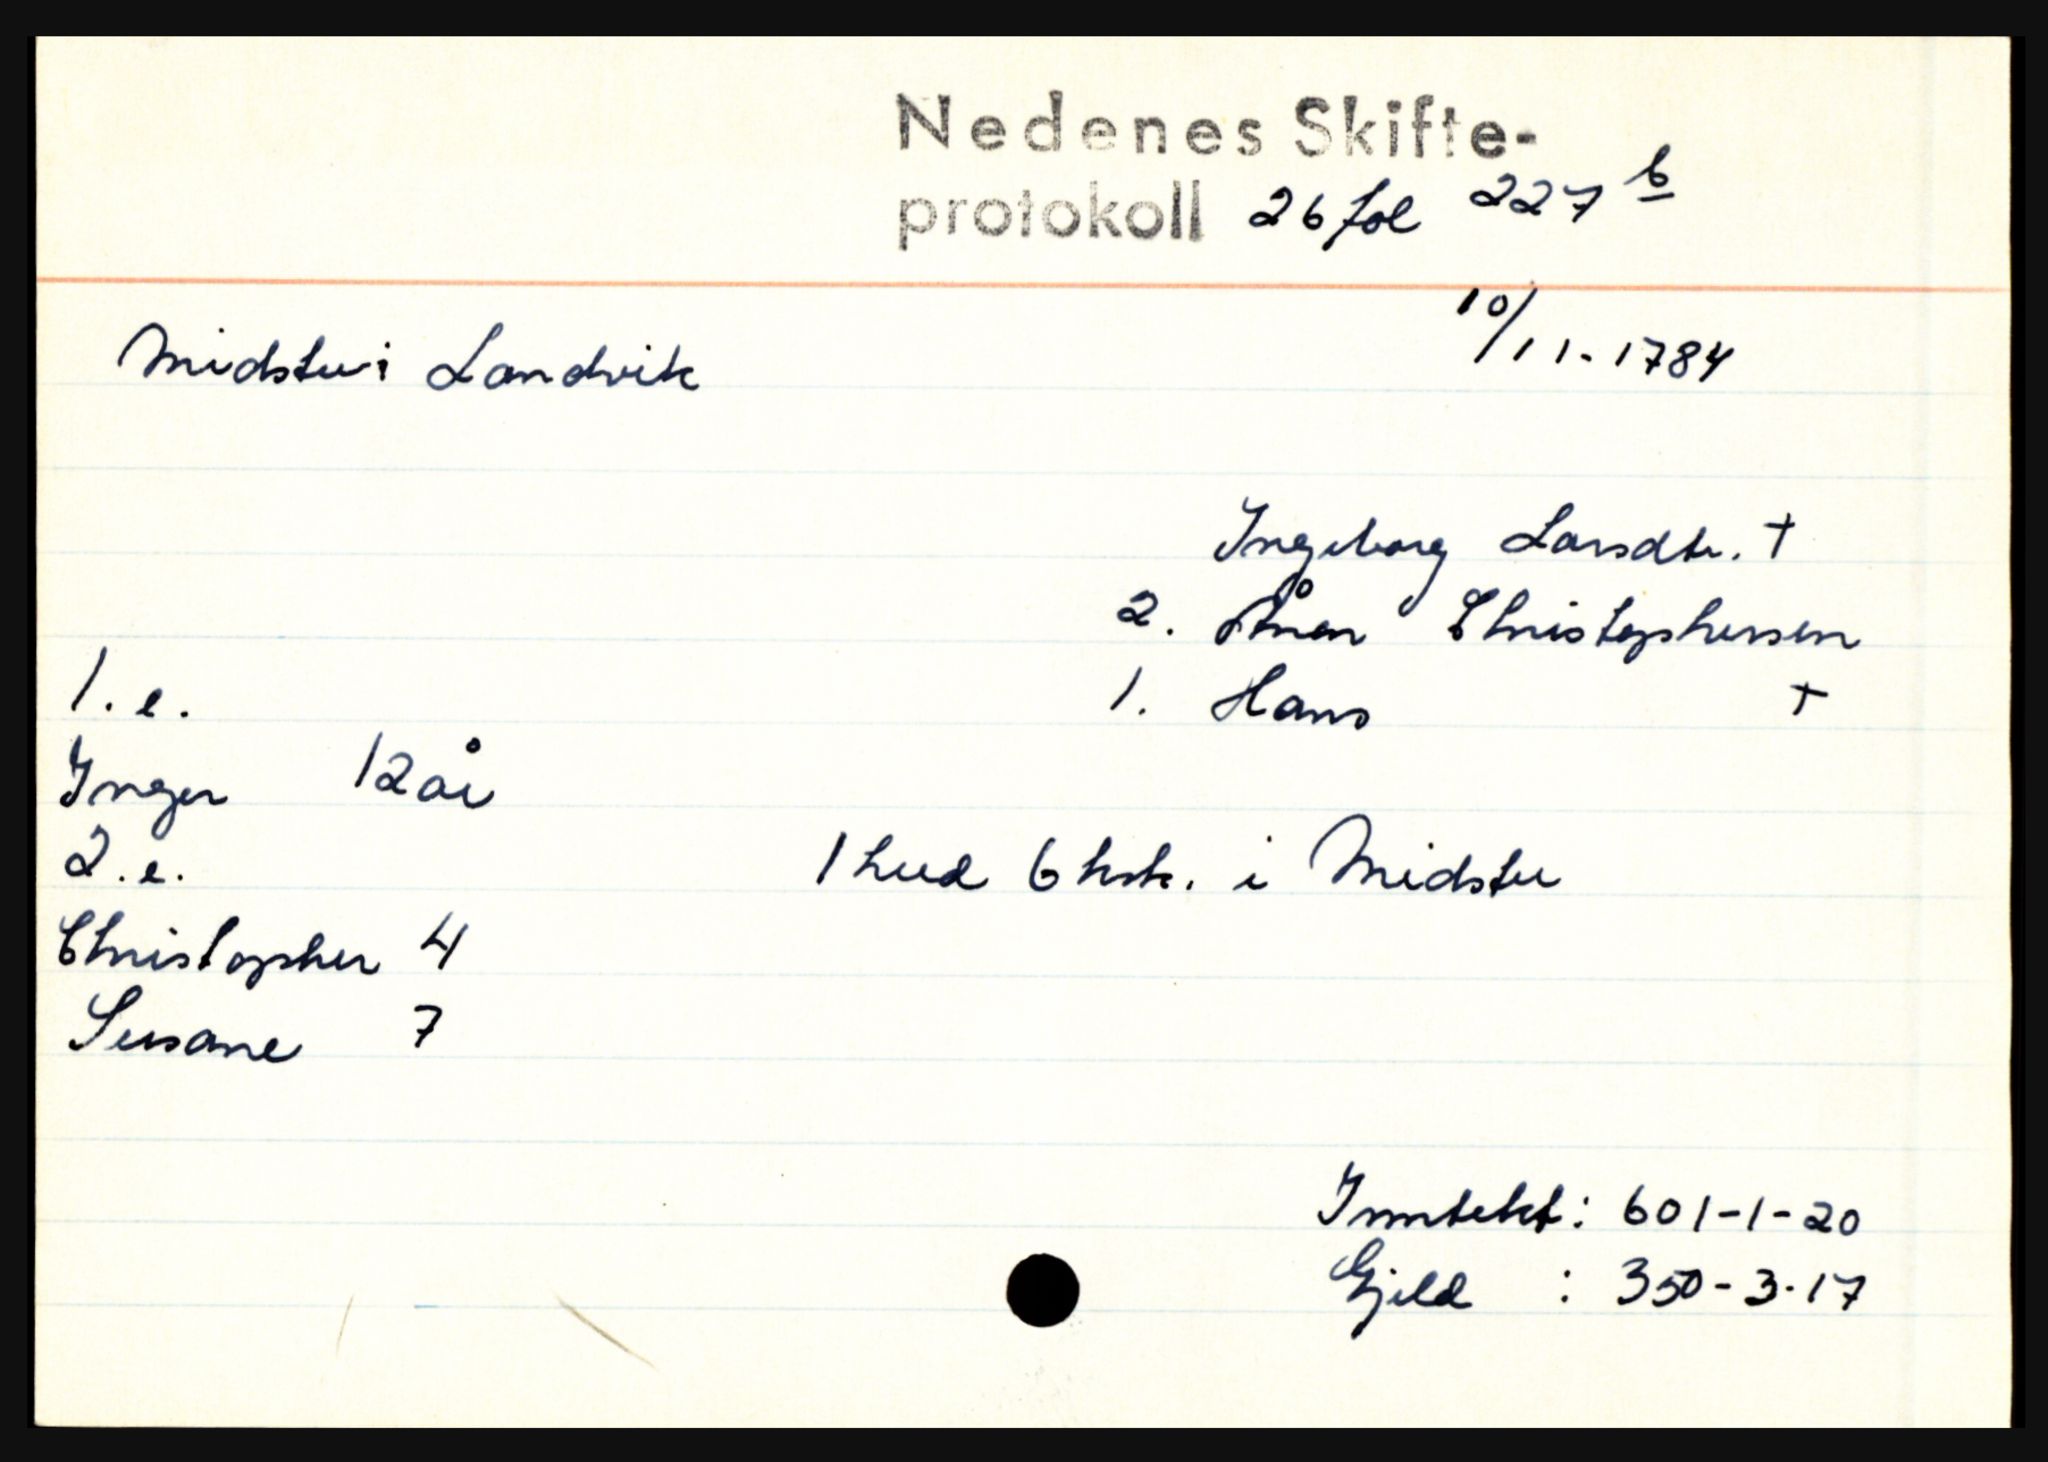 Nedenes Skifte-
protokoll 26 fol 227 b
10/11-1784
Midstu i Landvik
Ingeborg Larsdtr. †
2. Ånen Christophersen
1. e.
1. Hans †
Inger 12 år
2. e.
1 hud 6 ksk. i Midstu
Christopher 4
Susane 7
Inntekt: 601-1-20
Gjeld : 350-3-17